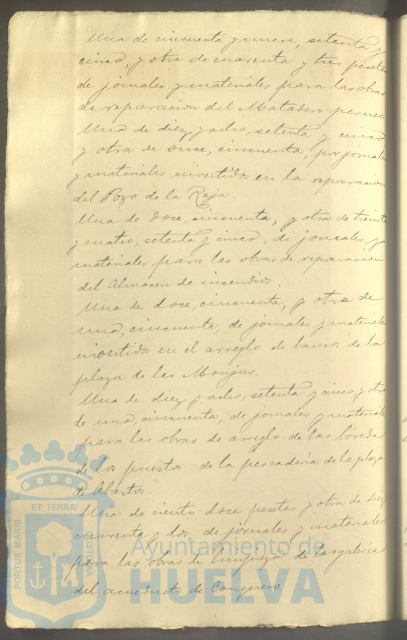 Una de cincuenta y nueve, setenta y
cinco, y otra de cuarenta y tres pesetas
de jornales y materiales para las obras
de reparacion del Matadero
Una de diez y ocho, setenta y cinco
y otra de once, cincuenta, por jornales
y materiales invertidos en la reparacion
del Pozo de la Reja.
Una de doce, cincuenta, y otra de treinta
y cuatro, setenta y cinco, de jornales, y
materiales para las obras de reparacion
del Almacen de incendios.
Una de doce, cincuenta, y otra de
una, cincuenta, de jornales y materiales
invertidos en el arreglo de bancos de la
plaza de las Monjas.
Una de diez y ocho, setenta y cinco y otra
de una, cincuenta, de jornales y materiales
para las obras de arreglo de las
de los puestos de la pescaderia de la plaza
de Abastos.
Una de ciento doce pesetas y otra de diez
cuarenta y dos, de jornales y materiales
para las obras de limpieza de las galerias
del acueducto de Conquero
PORTUS MARIS
ET TERRÆ
CUSTODIA
Ayuntamiento de
HUELVA